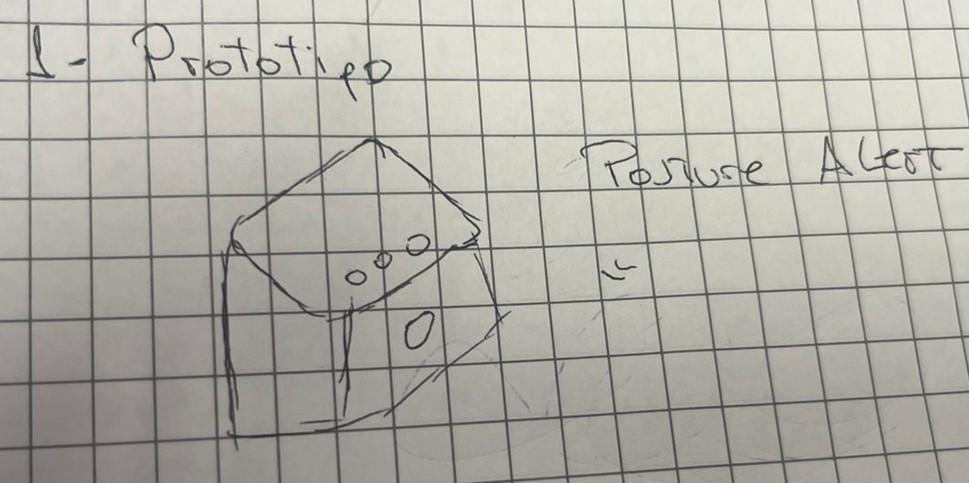 1- Prototipo
Posture Alert